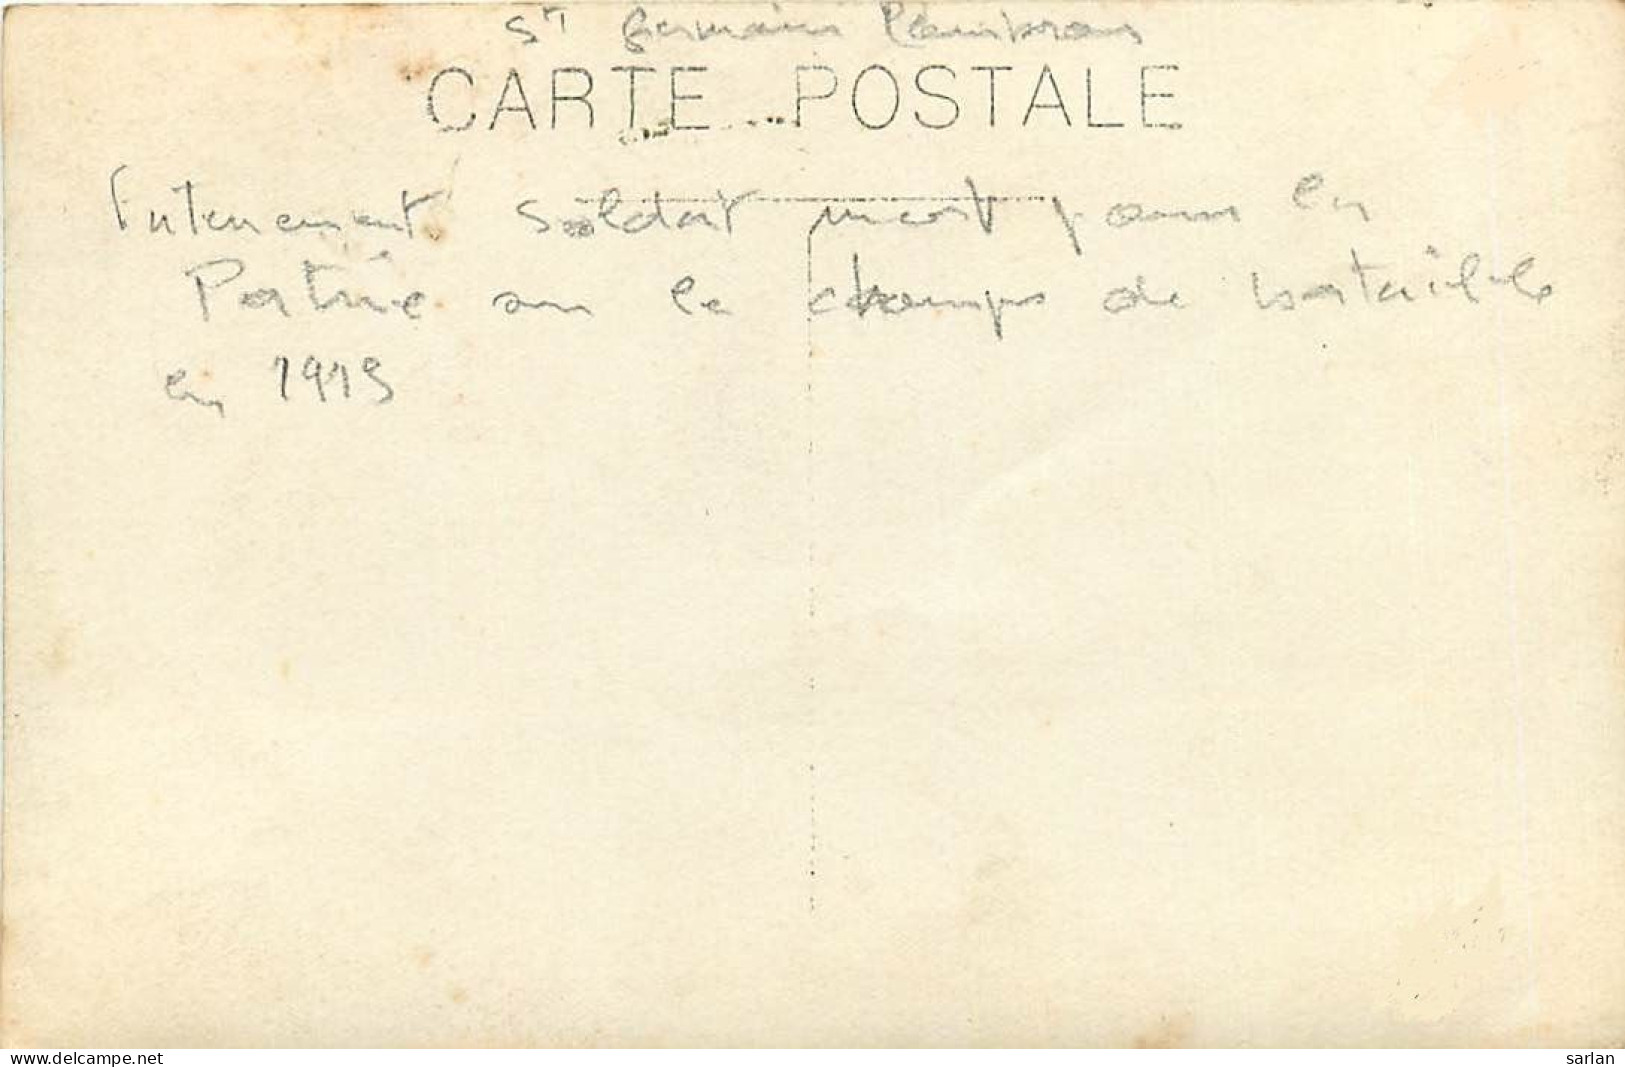 St Germain Lembron
CARTE POSTALE
Enterrement soldat mort pour la
Patrie sur le champs de bataille
en 1915
www.delcampe.net
sarlan